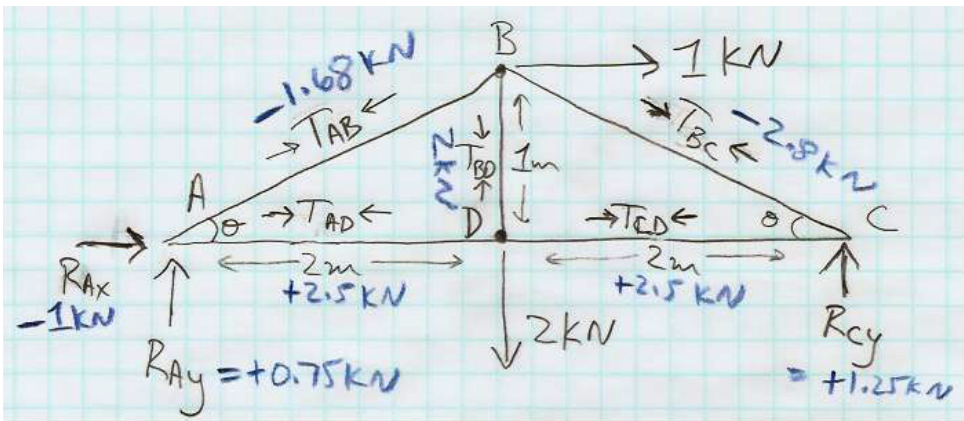 B
1 KN
-1.68 KN
T_AB
2KN
T_BD
1m
T_BC
-2.8 KN
A
θ
T_AD
D
T_CD
θ
C
R_Ax
-1KN
2m
+2.5 KN
2m
+2.5 KN
2KN
R_Ay = +0.75KN
R_Cy
= +1.25KN